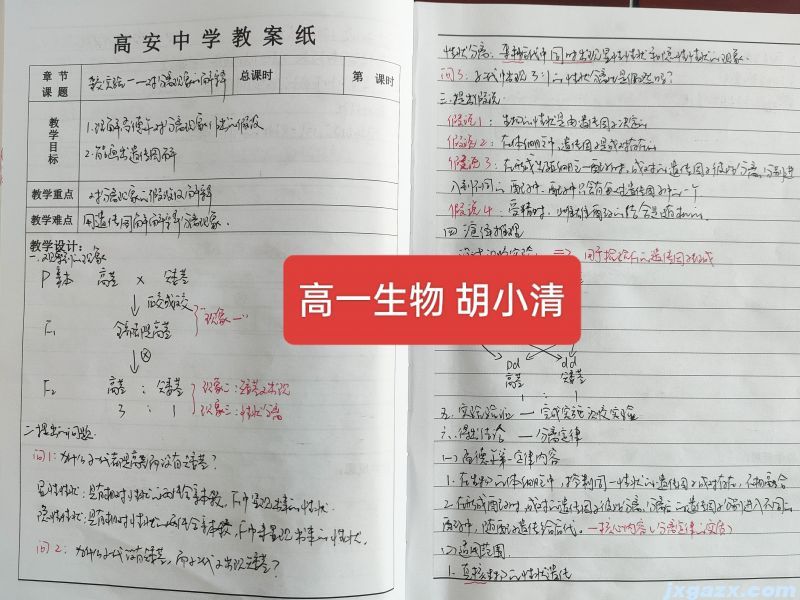 高安中学教案纸
章节
课题
杂交实验一——对分离现象的解释
总课时
第 课时
教学目标
1.理解孟德尔对分离现象提出的假设
2.简画出遗传图解
教学重点
对分离现象的假设及解释
教学难点
用遗传图解解释分离现象
教学设计:
一、观察到的现象
P 亲本 高茎 × 矮茎
正交或反交
F₁ 全都是高茎
"现象一"
F₂ 高茎 : 矮茎
3 : 1
现象二:矮茎又出现
现象三:性状分离
二、提出问题
问1:为什么子一代都是高茎而没有矮茎?
显性性状:具有相对性状的两纯合亲本杂交,F₁中显现出来的性状
隐性性状:具有相对性状的两纯合亲本杂交,F₁中未显现出来的性状
问2:为什么子一代没有矮茎,而子二代又出现矮茎?
性状分离:杂种后代中同时出现显性性状和隐性性状的现象
问3:子二代出现3:1的性状分离比是偶然吗?
三、提出假说
假说1:生物的性状是由遗传因子决定的
假说2:在体细胞中,遗传因子是成对存在的
假说3:在形成生殖细胞—配子时,成对的遗传因子彼此分离,分别进
入到不同的配子中,配子中只含有每对遗传因子中的一个
假说4:受精时,雌雄配子的结合是随机的
四、演绎推理
高一生物 胡小清
Dd dd
高茎 矮茎
1 : 1
五、实验验证 — 完成实施测交实验
六、得出结论 — 分离定律
(一)孟德尔第一定律内容
1.在生物的体细胞中,控制同一性状的遗传因子成对存在,不相融合
2.在形成配子时,成对的遗传因子彼此分离,分离后的遗传因子分别进入不同的
配子中,随配子遗传给后代。—核心内容(分离定律的实质)
(二)适用范围
1.真核生物的性状遗传
jxgazx.com